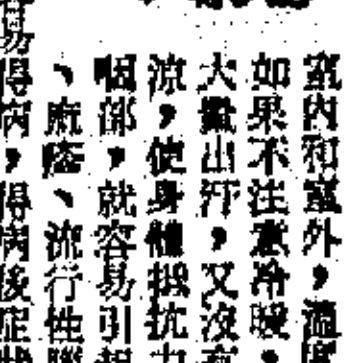 室內和室外，溫
如果不注意冷暖，
大出汗，又沒
，使身體抵抗力
咽部，就容易引
、麻疹、流行性腦
易得病，得病後症